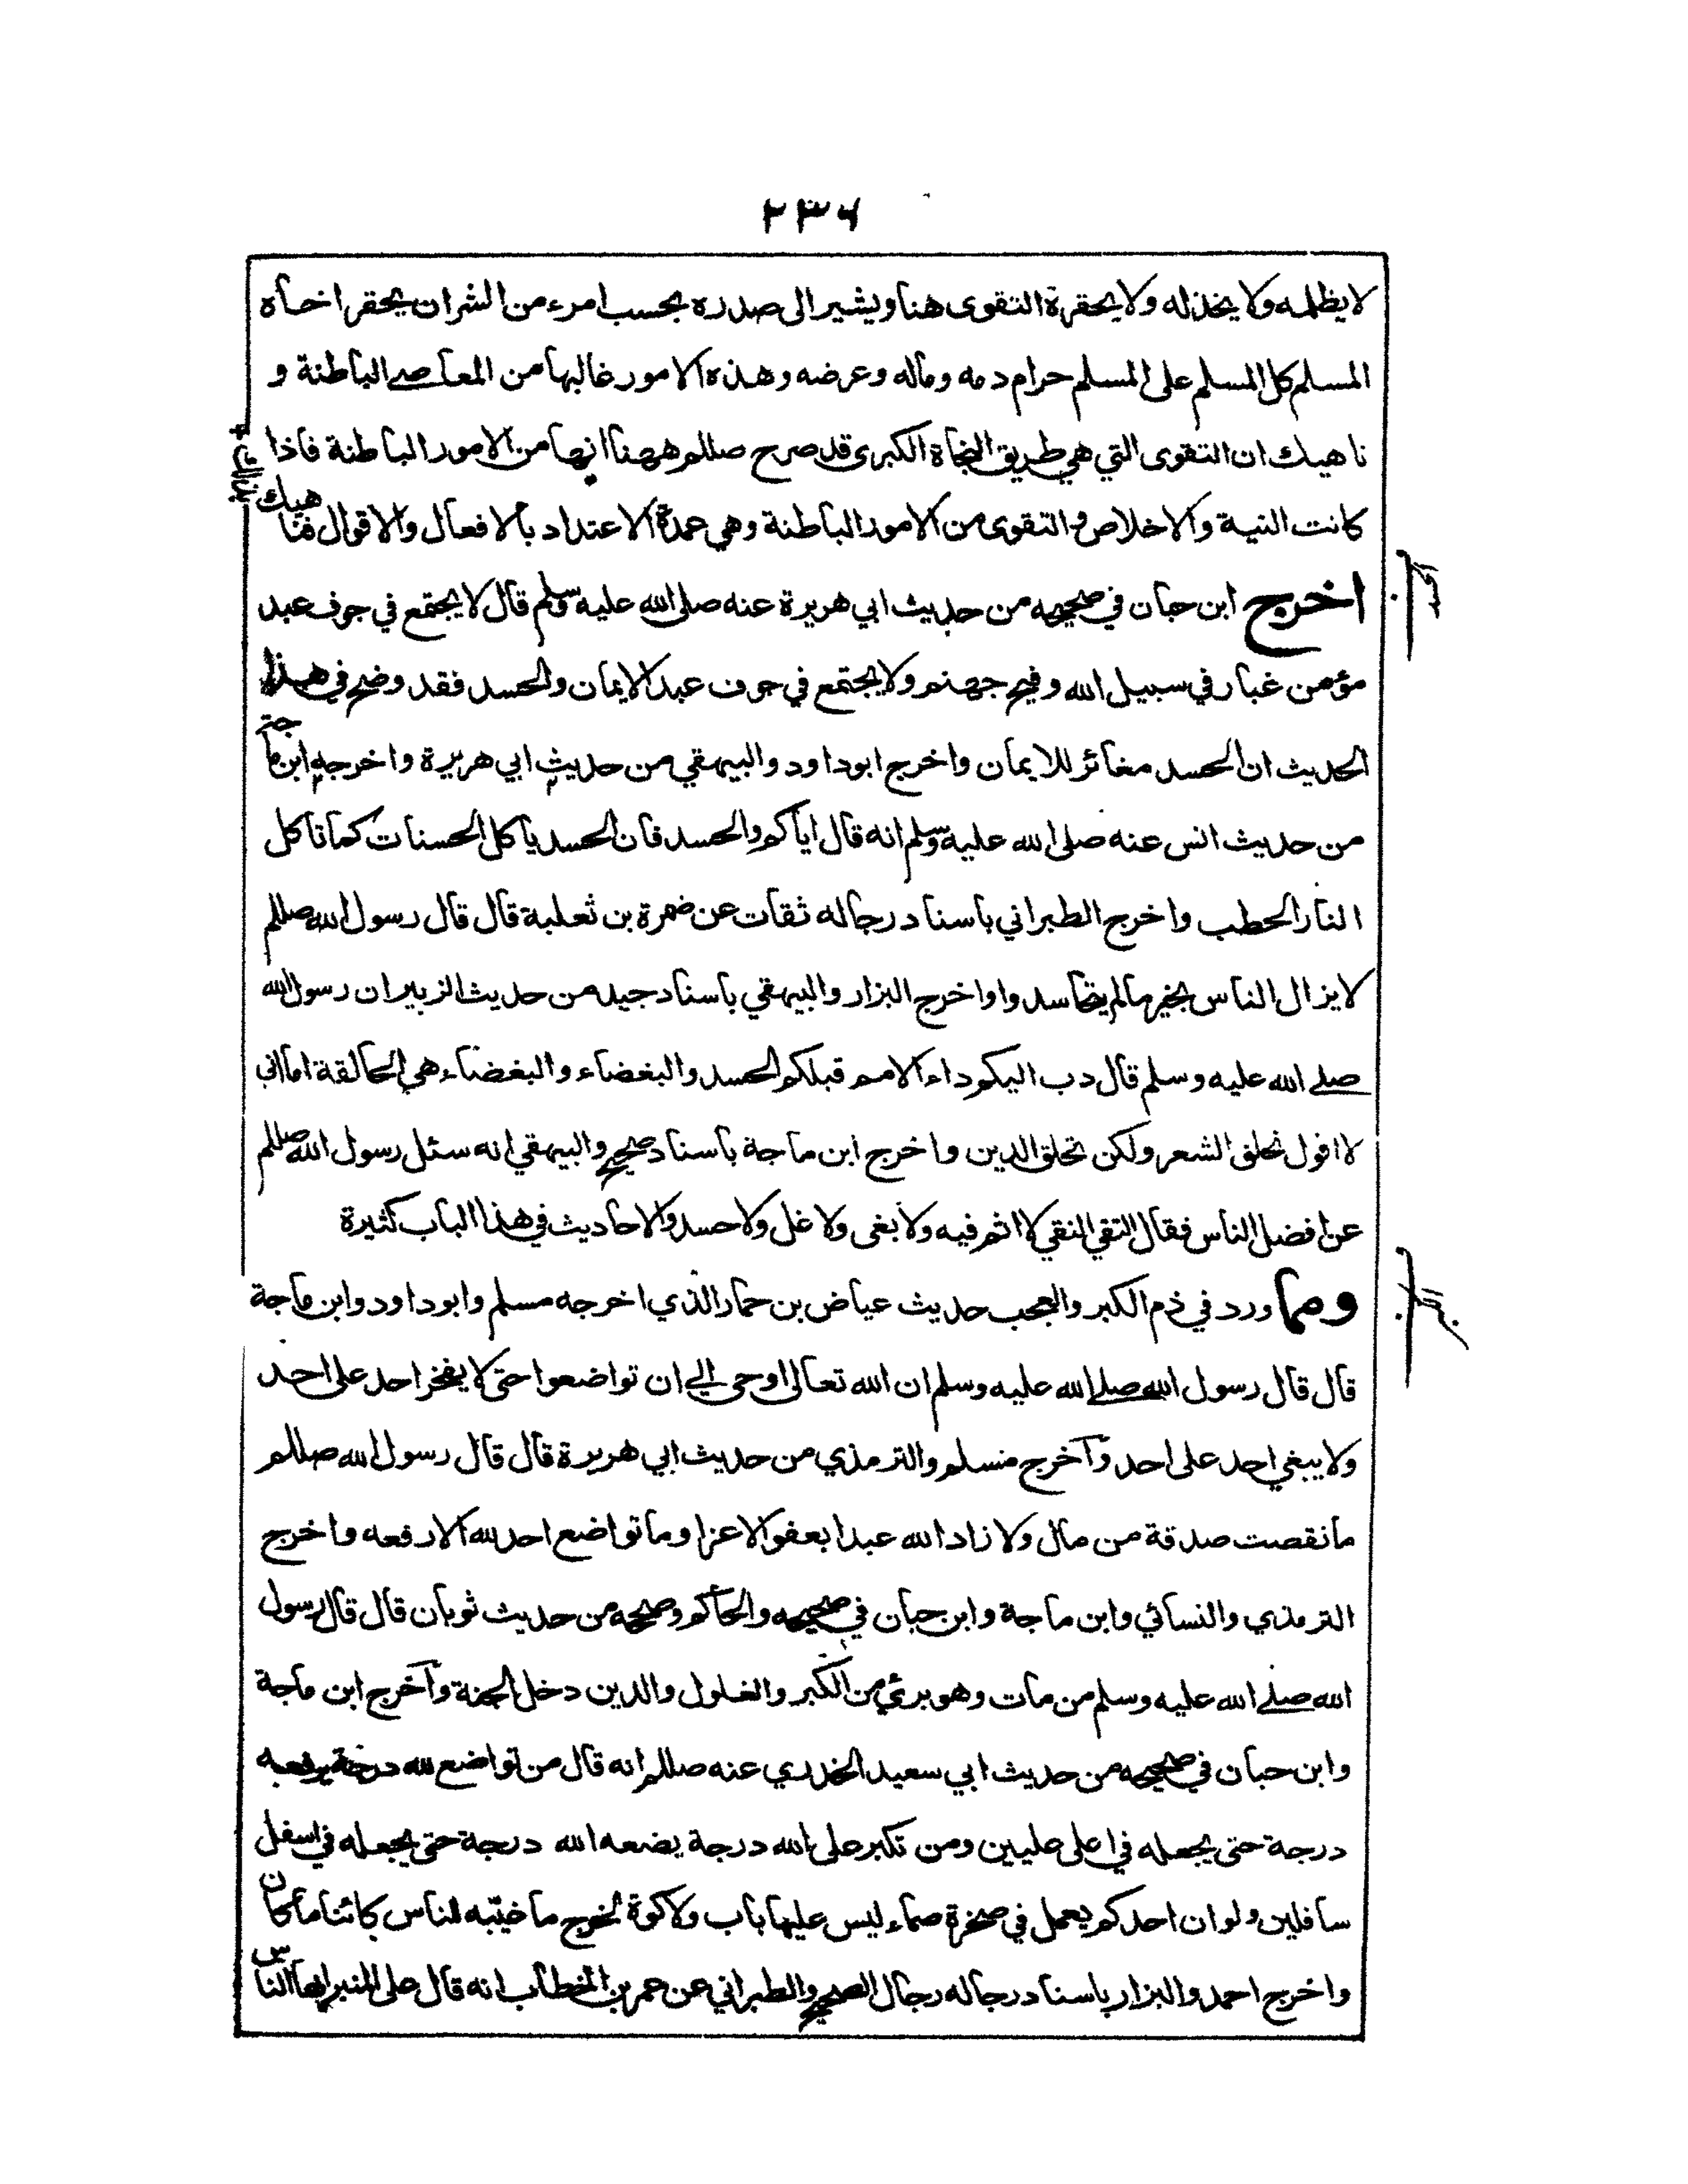 ٢٣٦
لا يظلمه ولا يخذله ولا يحقرة التقوى هنا ويشير الى صدره بحسب امرء من الشران يحقر اخاه
المسلم كل المسلم على المسلم حرام دمه وماله وعرضه وهذه الامور غالبها من المعاصے الباطنة و
ناهيك ان التقوى التي هي طريق النجاة الكبرى قد صرح صللم ههنا انها من الامور الباطنة فاذا
كانت النية والاخلاص والتقوى من الامور الباطنة وهي عمدة الاعتداد بالافعال والاقوال فناهيك
بذالك +
اخرج ابن حبان في صحيحه من حديث ابي هريرة عنه صلى الله عليه وسلم قال لا يجتمع في جوف عبد
الحسد
مؤمن غبار في سبيل الله وفيح جهنم ولا يجتمع في جوف عبد الايمان والحسد فقد وضح في هذا
الحديث ان الحسد مغائر للايمان واخرج ابوداود والبيهقي من حديث ابي هريرة واخرجه ابن ماجة
من حديث انس عنه صلى الله عليه وسلم انه قال اياكم والحسد فان الحسد ياكل الحسنات كما تاكل
النار الحطب واخرج الطبراني باسناد رجاله ثقات عن ضمرة بن ثعلبة قال قال رسول الله صللم
لا يزال الناس بخير ما لم يتحاسدوا واخرج البزار والبيهقي باسناد جيد من حديث الزبير ان رسول الله
صلے الله عليه وسلم قال دب اليكم داء الامم قبلكم الحسد والبغضاء والبغضاء هي الحالقة اما اني
لا اقول تحلق الشعر ولكن تحلق الدين واخرج ابن ماجة باسناد صحيح والبيهقي انه سئل رسول الله صللم
عن افضل الناس فقال التقي النقي لا اثم فيه ولا بغى ولا غل ولا حسد والاحاديث في هذا الباب كثيرة
ومما ورد في ذم الكبر والعجب حديث عياض بن حمار الذي اخرجه مسلم وابوداود وابن ماجة
الكبر
قال قال رسول الله صلے الله عليه وسلم ان الله تعالى اوحى الي ان تواضعوا حتى لا يفخر احد على احد
ولا يبغي احد على احد وآخرج مسلم والترمذي من حديث ابي هريرة قال قال رسول الله صللم
ما نقصت صدقة من مال ولا زاد الله عبدا بعفو الا عزا وما تواضع احد لله الا رفعه واخرج
الترمذي والنسائي وابن ماجة وابن حبان في صحيحه والحاكم وصححه من حديث ثوبان قال قال رسول
الله صلے الله عليه وسلم من مات وهو برئ من الكبر والغلول والدين دخل الجنة وآخرج ابن ماجة
وابن حبان في صحيحه من حديث ابي سعيد الخدري عنه صللم انه قال من تواضع لله درجة يرفعه
درجة حتى يجعله في اعلى عليين ومن تكبر على الله درجة يضعه الله درجة حتى يجعله في اسفل
سافلين ولو ان احدكم يعمل في صخرة صماء ليس عليها باب ولا كوة لخرج ما خيّبه للناس كائنا ما كان
واخرج احمد والبزار باسناد رجاله رجال الصحيح والطبراني عن عمر بن الخطاب انه قال على المنبر ايها الناس